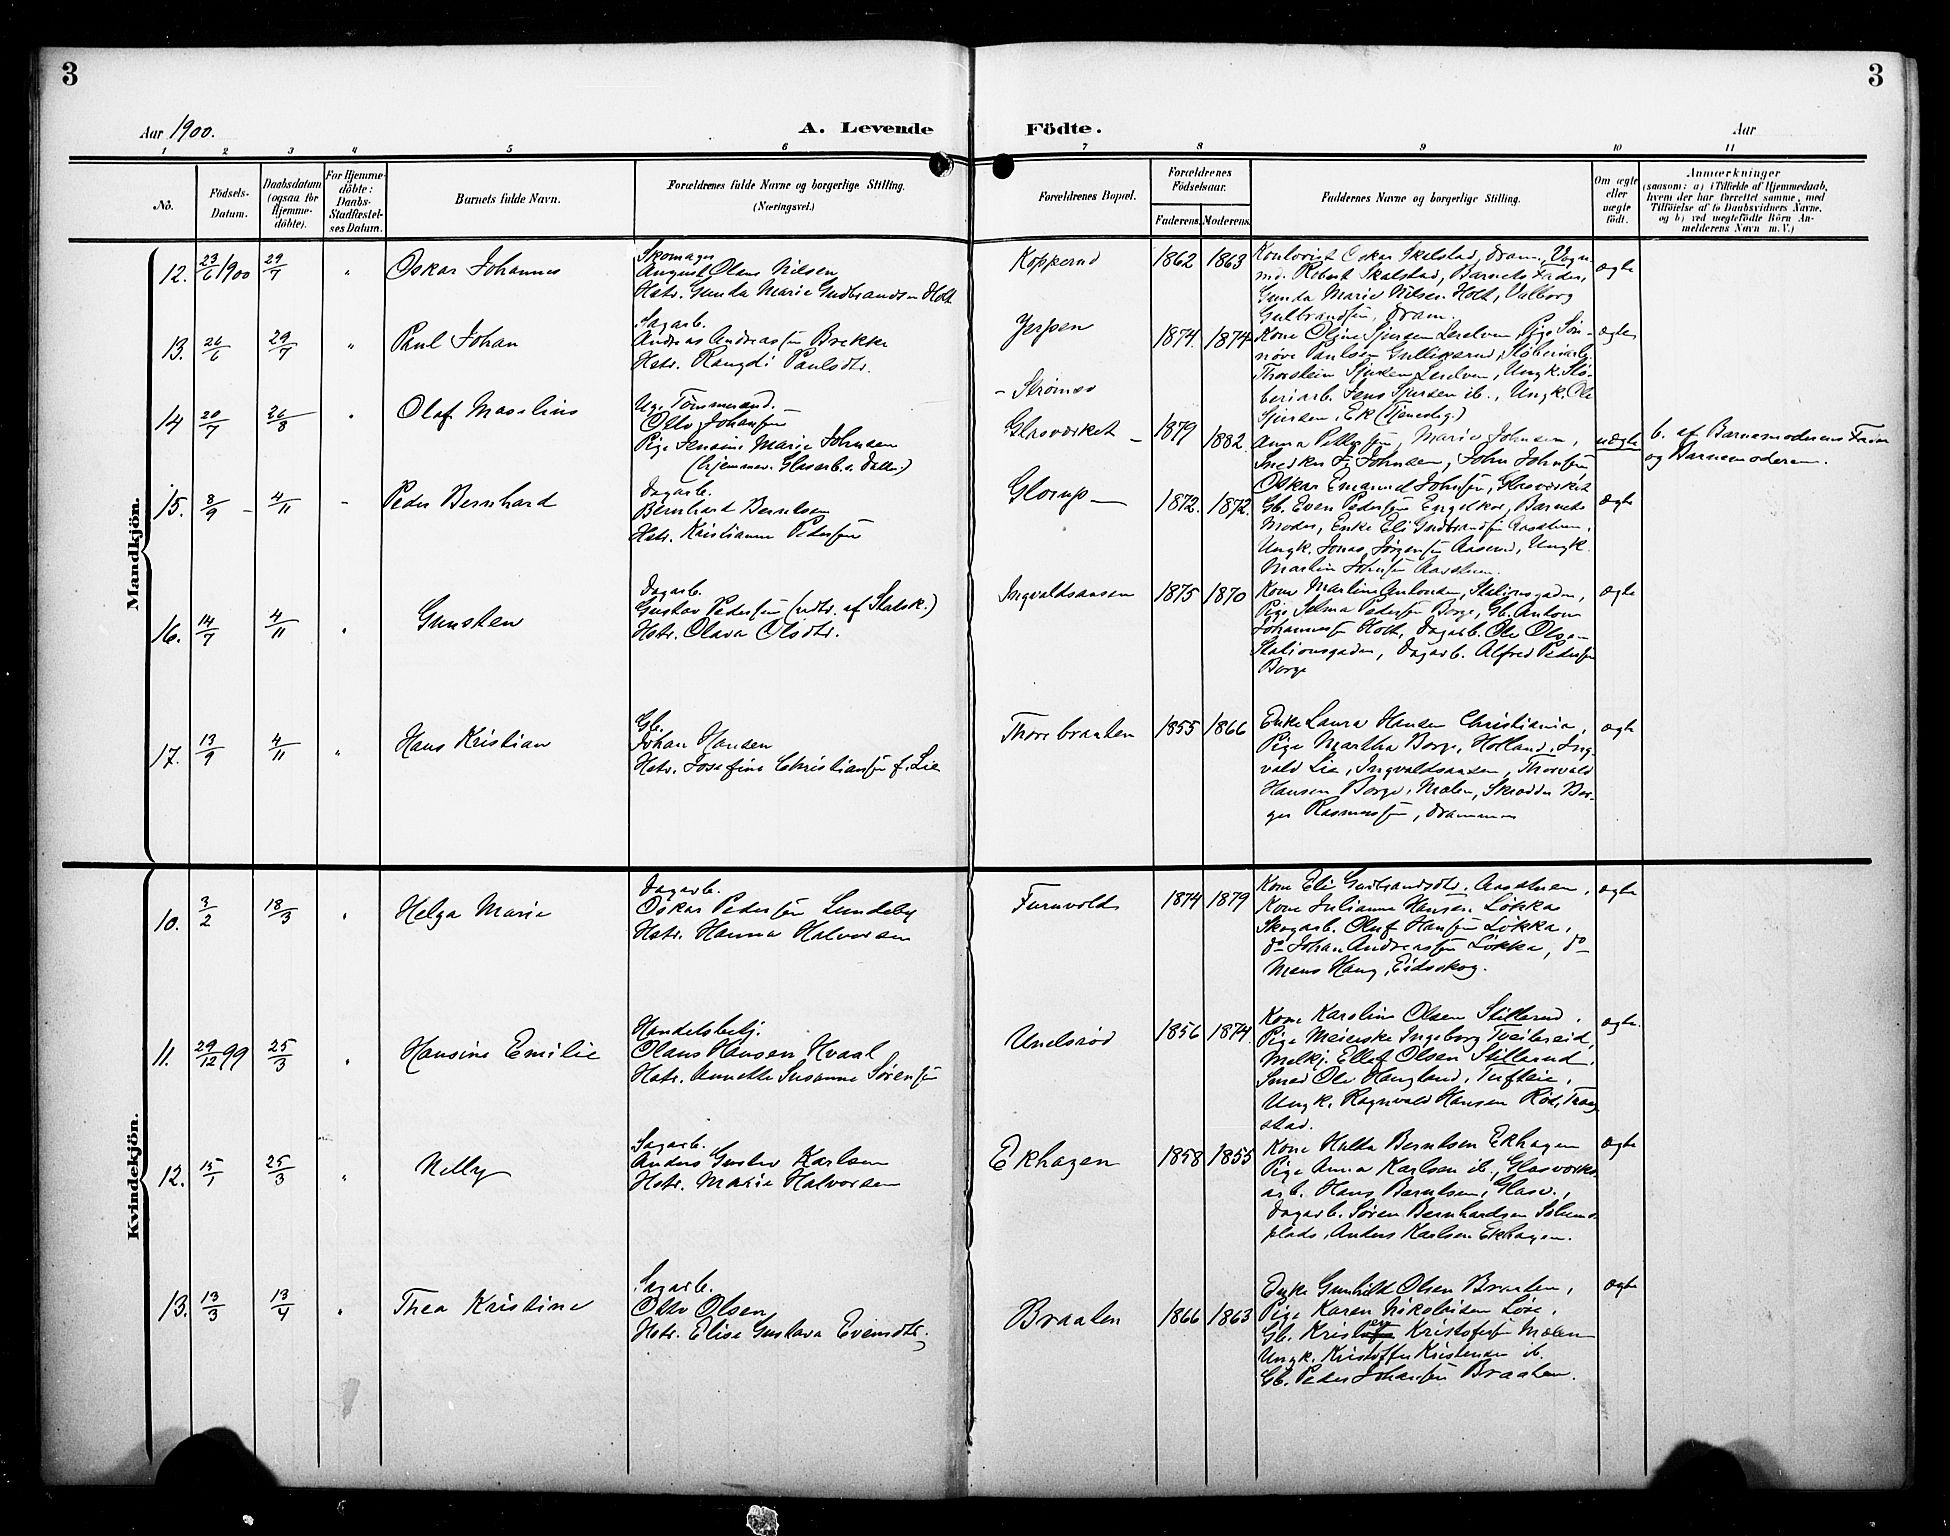 3
3
Aar 1900.
A. Levende
Födte.
Aar
1 2 3 4 5 6 7 8 9 10 11
No.
Födsels-
Datum.
Daabsdatum
(ogsaa for
Hjemme-
döbte).
For Hjemme-
döbte:
Daabs-
Stadfæstel-
ses Datum.
Barnets fulde Navn.
Forældrenes fulde Navne og borgerlige Stilling.
(Næringsvei.)
Forældrenes Bopæl.
Forældrenes
Födselsaar.
Faderens.
Moderens.
Faddernes Navne og borgerlige Stilling.
Om ægte
eller
uægte
födt.
Anmærkninger
(saasom: a) i Tilfælde af Hjemmedaab,
hvem der har forrettet samme, med
Tilföielse af to Daabsvidners Navne,
og b) ved uegtefödte Börn An-
melderens Navn m. V.)
Mandkjön.
12. 23/6 1900 29/7 " Oskar Johannes
Skomager
August Olaus Nilsen
Hstr. Gunda Marie Gudbrandsen Holt
Kopperud 1862 1863
Oskar Skalstad, Dram.,
Robert Skalstad, Barnets Fader,
Gunda Marie Nilsen Holt, Valborg
Gulbrandsen, Dram.
ægte
13. 26/6 29/7 " Paul Johan
Sagarb.
Andreas Andreassen Brekke
Hstr. Rangdi Paulsdtr.
Jerpen
- Strømes
1874. 1874
Kone Oline Sjursen Lerelven, Pige Søn-
nøve Paulsen Gullikerud, Støberiarb.
Thorstein Sjursen Lerelven, Ungk. Stø-
beriarb. Jens Sjursen ib., Ungk. Ole
Sjursen, Ek (Tjenestg.)
ægte
14 20/7 26/8 " Olaf Maselius
Ug. Tømmermand.
Otto Johansen
Pige Jensine Marie Johnsen
(hjemmev. Glasarb.s Datter)
Glasværket - 1879 1882.
Anna Pettersen, Marie Johnsen,
Snedker Johnsen, John Johnsen
Oskar Emanuel Johnsen, Glasværket
uægte
b. af Barnemoderens Far
og Barnemoderen.
15. 8/9 - 4/11 - Peder Bernhard
Dagarb.
Bernhard Berntsen
Hstr. Kristianne Pedersen
Glorup - 1872. 1872.
Gb. Even Pedersen Engelskor, Barnets
Moder, Enke Eli Gudbrandsen Aasstuen,
Ungk. Jonas Jørgensen Aaserud, Ungk.
Martin Johnsen Aasstuen.
ægte
16. 14/7 4/11 " Gunsten
Dagarb.
Gustav Pedersen (udtr. af Statsk.)
Hstr. Olava Olsdtr.
Ingvaldsaasen 1875 1870
Kone Martine Antonsen, Stationsgaden,
Pige Selma Pedersen Borge, Gb. Anton
Johannessen Holt, Dagarb. Ole Olsen
Stationsgaden, Dagarb. Alfred Pedersen
Borge
ægte
17. 13/9 4/11 " Hans Kristian
Gb.
Johan Hansen
Hstr. Josefine Christiansen f. Lie
Thorebraaten 1855 1866
Enke Laura Hansen Christiania,
Pige Martha Borge, Hotland, Ing-
vald Lie, Ingvaldsaasen, Thorvald
Hansen Borge, Mælen, Skrædder Bir-
ger Rasmussen, Drammen
ægte
Kvindekjön.
10. 3/2 18/3 " Helga Marie
Dagarb.
Oskar Pedersen Lundeby
Hstr. Hanna Halvorsen
Furuvold 1874 1879
Kone Eli Gudbrandsdtr. Aasstuen,
Kone Julianne Hansen Løkka
Skogarb. Oluf Hansen Løkka,
do Johan Andreassen Løkka, do
Mons Haug, Eidsskog.
ægte
11. 29/12 99 25/3 " Hansine Emilie
Handelsbetj.
Olaus Hansen Hvaal
Hstr. Annette Susanne Sørensen
Undsrød 1856 1874.
Kone Karoline Olsen Stillerud,
Pige Meierske Ingeborg Tveitereid,
Melkj. Ellef Olsen Stillerud,
Smed Ole Haugland, Tufteie,
Ungk. Ragnvald Hansen Rød, Trøg-
stad.
ægte.
12. 15/1 25/3 " Nelly
Sagarb.
Anders Gustav Karlsen
Hstr. Marie Halvorsen
Ekhagen 1858 1855
Kone Hulda Berntsen Ekhagen
Pige Anna Karlsen ib., Glasværks-
arb. Hans Berntsen, Glasv.,
Dagarb. Søren Bernhardsen Solums-
plads, Anders Karlsen Ekhagen.
ægte
13. 13/3 13/4 " Thea Kristine
Sagarb.
Otto Olsen
Hstr. Elise Gustava Evensdtr.
Braaten 1866 1863
Enke Gunhild Olsen Braaten,
Pige Karen Nikolaisen Løve,
Gb. Kristen Kristofersen Mælen
Ungk. Kristoffer Kristensen ib.
Gb. Peder Johansen Braaten.
ægte